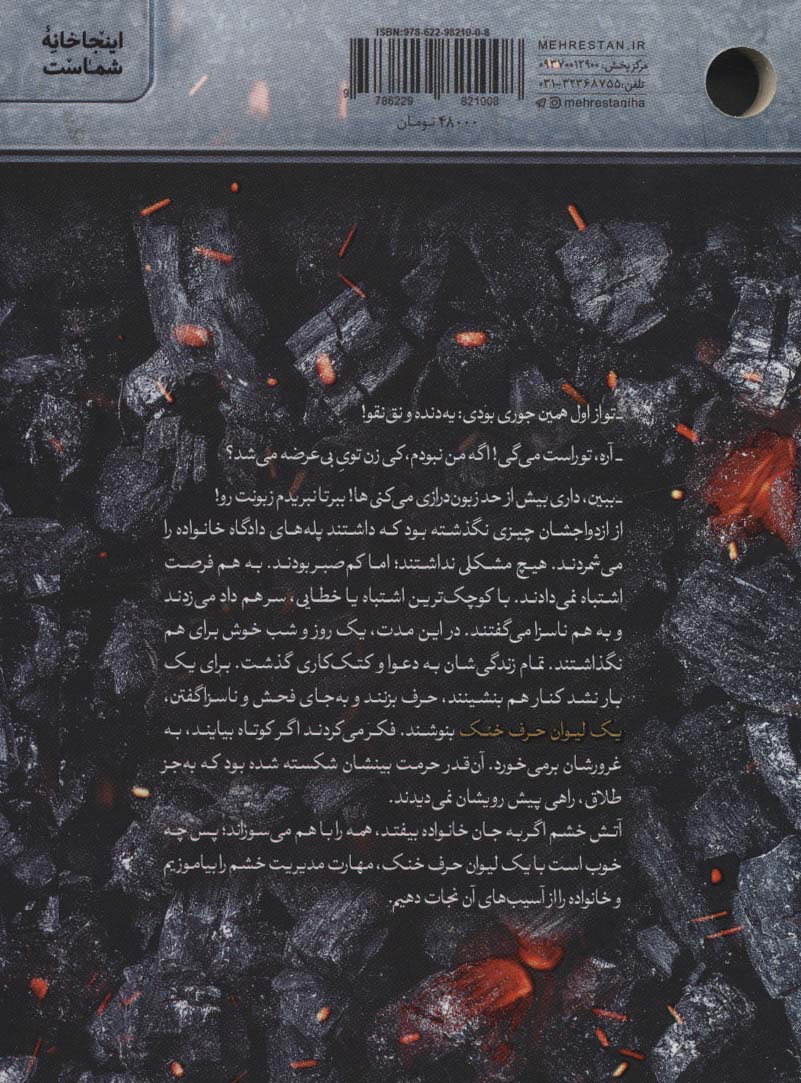 اینجا خانهٔ
شماست
ISBN: 978-622-98210-0-8
9 786229 821008
۴۸۰۰۰ تومان
MEHRESTAN.IR
مرکز پخش: ۰۹۳۷۰۰۱۲۹۰۰
تلفن: ۰۳۱-۳۲۳۶۸۷۵۵
mehrestaniha
ـ تو از اول همین جوری بودی: یه‌دنده و نق‌نقو!
ـ آره، تو راست می‌گی! اگه من نبودم، کی زن تویِ بی‌عرضه می‌شد؟
ـ ببین، داری بیش از حد زبون‌درازی می‌کنی ها! ببر تا نبریدم زبونت رو!
از ازدواجشان چیزی نگذشته بود که داشتند پله‌های دادگاه خانواده را
می‌شمردند. هیچ مشکلی نداشتند؛ اما کم‌صبر بودند. به هم فرصت
اشتباه نمی‌دادند. با کوچک‌ترین اشتباه یا خطایی، سر هم داد می‌زدند
و به هم ناسزا می‌گفتند. در این مدت، یک روز و شب خوش برای هم
نگذاشتند. تمام زندگی‌شان به دعوا و کتک‌کاری گذشت. برای یک
بار نشد کنار هم بنشینند، حرف بزنند و به‌جای فحش و ناسزا گفتن،
یک لیوان حرف خنک بنوشند. فکر می‌کردند اگر کوتاه بیایند، به
غرورشان برمی‌خورد. آن‌قدر حرمت بینشان شکسته شده بود که به‌جز
طلاق، راهی پیش رویشان نمی‌دیدند.
آتش خشم اگر به جان خانواده بیفتد، همه را با هم می‌سوزاند؛ پس چه
خوب است با یک لیوان حرف خنک، مهارت مدیریت خشم را بیاموزیم
و خانواده را از آسیب‌های آن نجات دهیم.